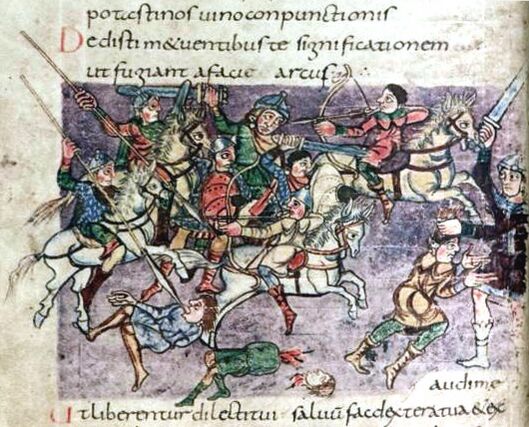 potastinos uino conpunctionis
Dedisti m&uentibus te significationem
ut fugiant afacie arcus
Ut liberentur dilectitui saluū fac dextera tua & ex
audime